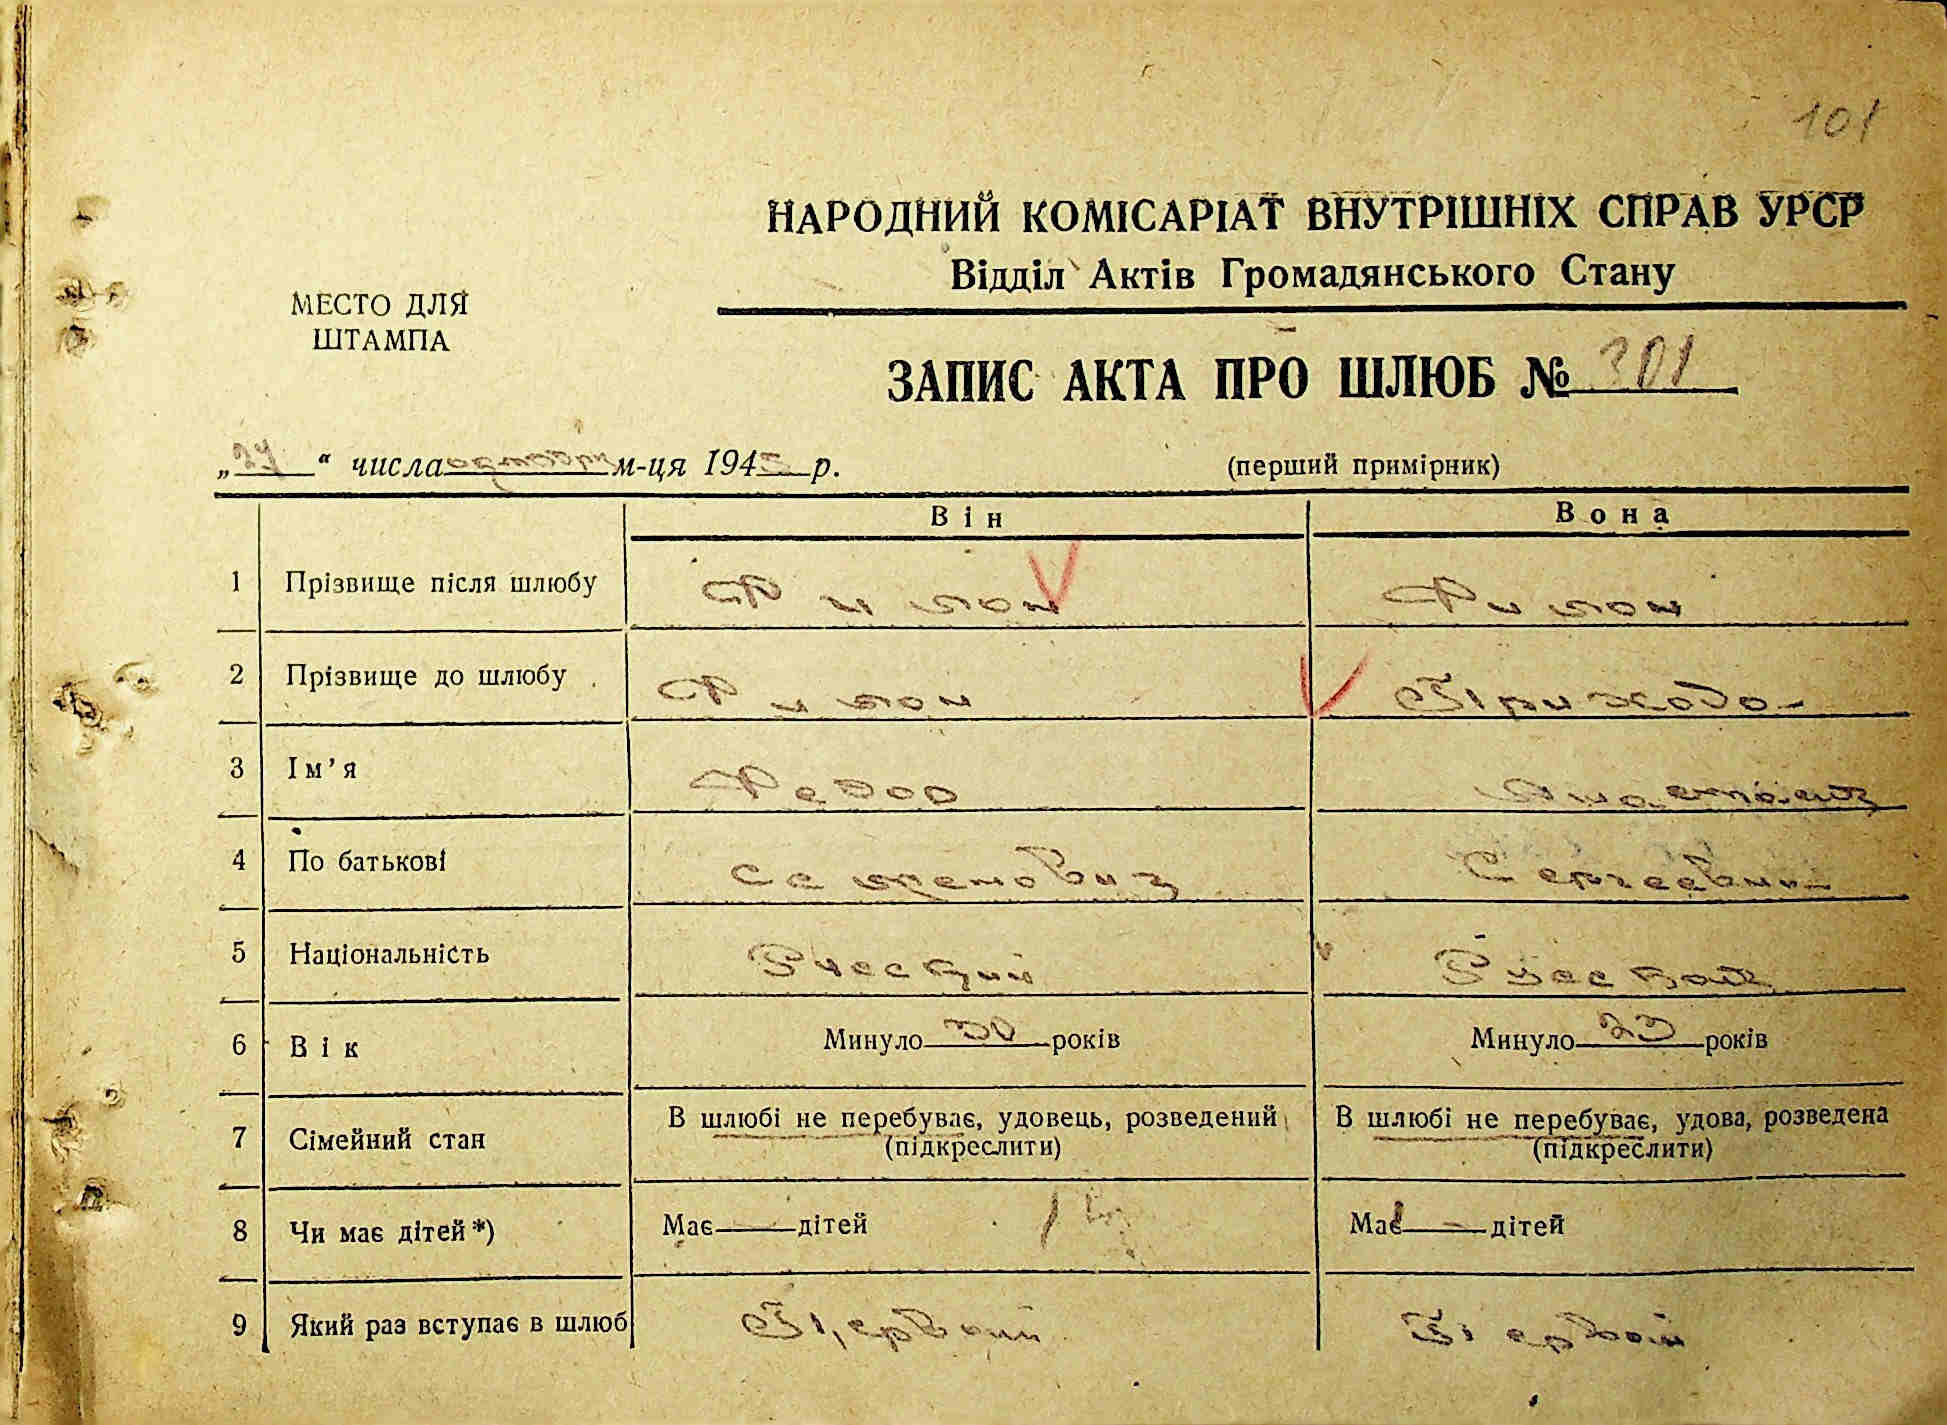 101
НАРОДНИЙ КОМІСАРІАТ ВНУТРІШНІХ СПРАВ УРСР
Відділ Актів Громадянського Стану
МЕСТО ДЛЯ
ШТАМПА
ЗАПИС АКТА ПРО ШЛЮБ № 301
„ “ числа октября м-ця 194 р.
(перший примірник)
Він Вона
1 Прізвище після шлюбу Филон Филон
2 Прізвище до шлюбу Филон Приходо-
3 Ім’я Федор Анастасия
4 По батькові Семенович Сергеевна
5 Національність Русский Русская
6 Вік Минуло 30 років Минуло 23 років
7 Сімейний стан В шлюбі не перебуває, удовець, розведений (підкреслити) В шлюбі не перебуває, удова, розведена (підкреслити)
8 Чи має дітей*) Має — дітей Має — дітей
9 Який раз вступає в шлюб Первый Первый